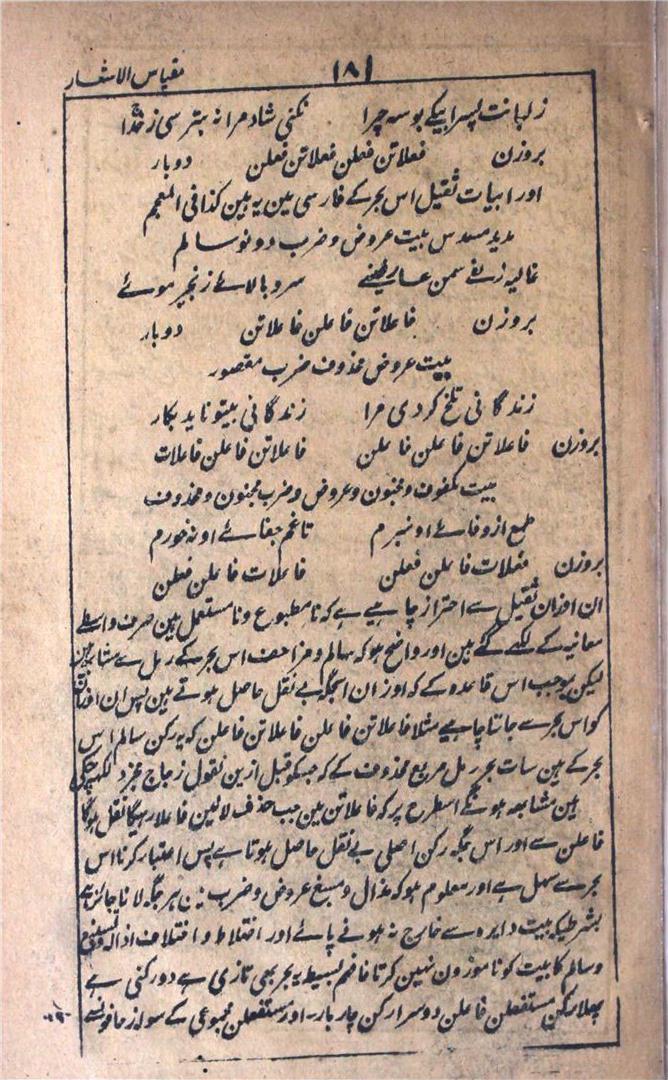 مقیاس الاشعار
۱۸۱
زلبانت پسرا بیکے بوسہ چرا نکنی شاد مرا نہ بترسی ز خدا
بروزن فعلاتن فعلن فعلاتن فعلن دوبار
اور ابیات ثقیل اس بحر کے فارسی مین یہ ہین کذا فی المعجم
مدید مسدس بیت عروض و ضرب دونو سالم
غالیہ زلفے سمن عارضے سرو بالائے زنجیر موئے
بروزن فاعلاتن فاعلن فاعلاتن دوبار
بیت عروض محذوف ضرب مقصور
زندگانی تلخ کردی مرا زندگانی بیتو ناید بکار
بروزن فاعلاتن فاعلن فاعلن فاعلاتن فاعلن فاعلات
بیت مکفوف و مخبون و عروض و ضرب مخبون و محذوف
طمع از وفائے او نبرم تا غم جفائے او نہ خورم
بروزن فاعلات فاعلن فعلن فاعلات فاعلن فعلن
ان اوزان ثقیل سے احتراز چاہیے ہے کہ نا مطبوع و نا مستعمل ہین صرف واسطے
معانیہ کے لکھے گئے ہین اور واضح ہو کہ سالم و مزاحف اس بحر کے رمل سے مشابہ ہین
لیکن بوجب اس قاعدہ کے کہ اوزان اسجگہ بے نقل حاصل ہوتے ہین پس ان اوزان
کو اس بحر سے جاننا چاہیے مثلا فاعلاتن فاعلن فاعلاتن فاعلن کہ یہ رکن سالم اس
بحر کے ہین سات بحر رمل مربع محذوف کے کہ جسکو قبل ازین بقول زجاج مجزد لکھ چکے
ہین مشابھ ہونگے اسطرح پر کہ فاعلاتن مین جب حذف لائین فاعلا رہیگا نقل ہوگا
فاعلن سے اور اس جگہ رکن اصلی بے نقل حاصل ہوتا ہے پس اعتبار کرنا اس
بحر سے سہل ہے اور معلوم ہو کہ مذال و مسبغ عروض و ضرب مین ہر جگہ لانا جائز ہے
بشرطیکہ بیت دایرہ سے خارج نہ ہونے پائے اور اختلاط و اختلاف اذالہ
و سالم کا بیت کو نا موزون نہین کرتا فافہم بسیط یہ بحر بھی تازی ہے دو رکنی ہے
پہلا رکن مستفعلن فاعلن دوسرا رکن چار بار۔ اور مستفعلن مجموعی کے سولہ زحافونسے